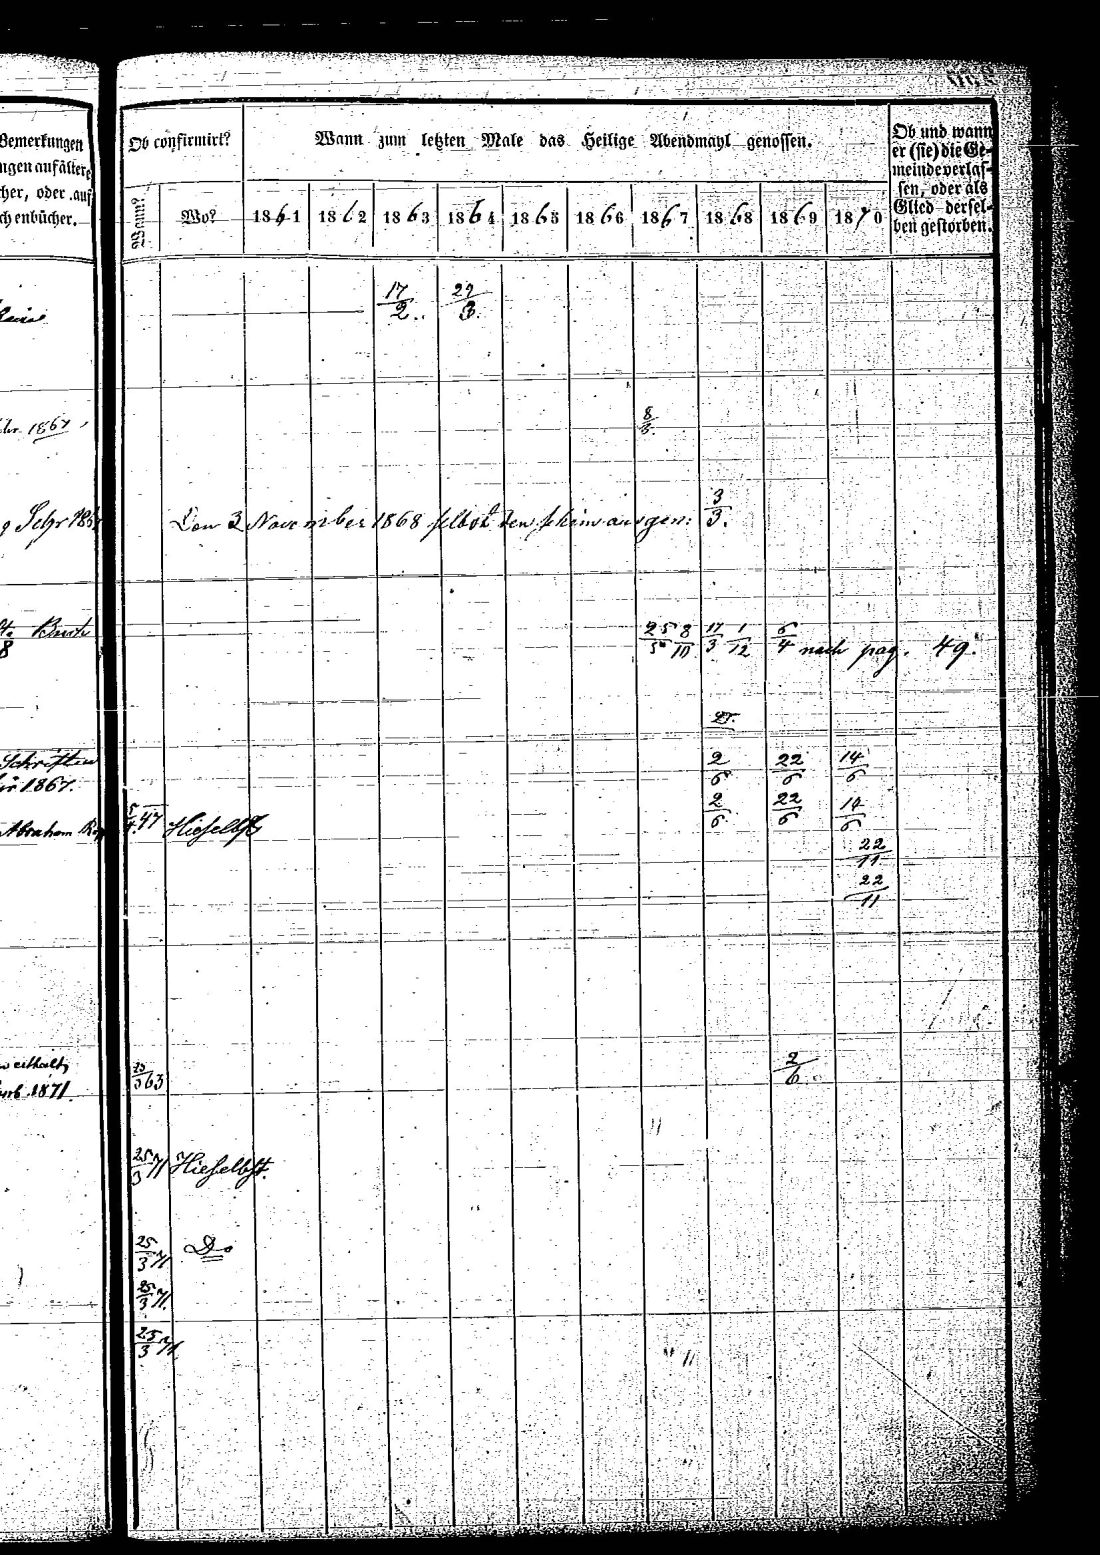 Bemerkungen
ngen auf ältere
cher, oder auf
chenbücher.
Ob confirmirt?
Wann?
Wo?
Wann zum letzten Male das Heilige Abendmahl genossen.
1861 1862 1863 1864 1865 1866 1867 1868 1869 1870
Ob und wann
er (sie) die Ge-
meinde verlas-
sen, oder als
Glied dersel-
ben gestorben.
17/2. 27/3.
1867
8/3.
3/3.
Den 3 November 1868 selbst den schein ausgen:
25/5 8/10 17/3 1/12 6/4 nach pag. 49.
8
Schriften
2/6 22/6 14/6
1867.
2/6 22/6 14/6
Abraham
47 Hieselbst
22/11
22/11
2/6
63
1871
25/3 71 Hieselbst.
25/3 71 Do
25/3 71.
25/3 71.